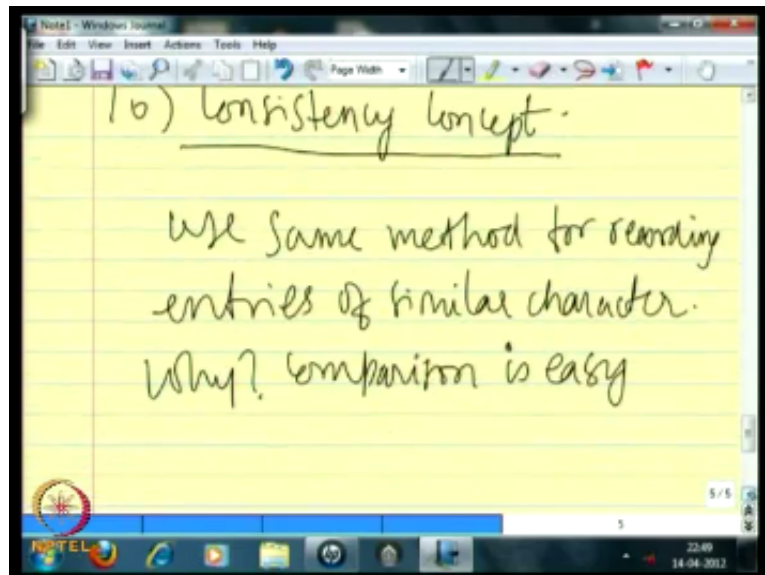 Note1 - Windows Journal
File Edit View Insert Actions Tools Help
Page Width
10) Consistency Concept.
Use same method for recording
entries of similar character.
Why? Comparison is easy
5/5
5
NPTEL
22:49
14-04-2012